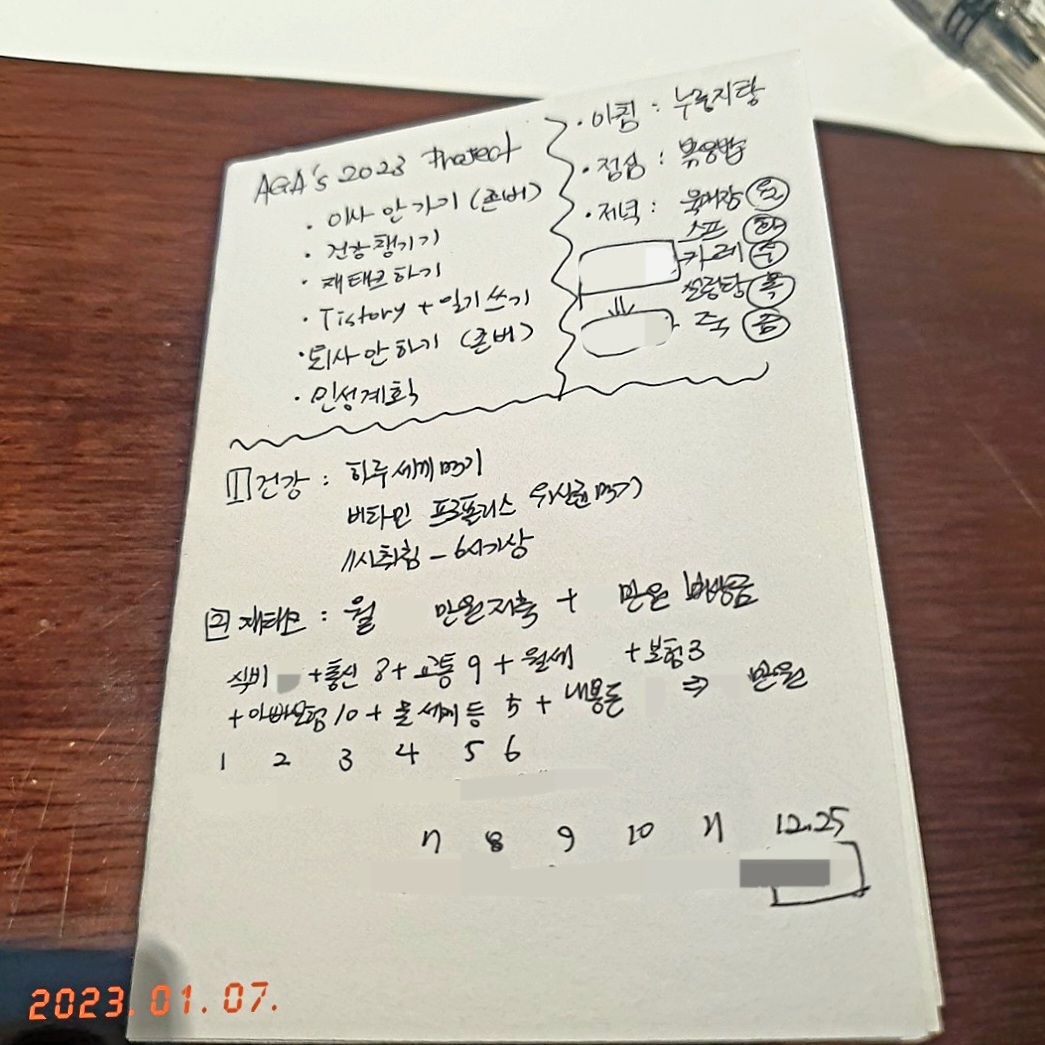 AGA's 2023 Project
· 이사 안 가기 (존버)
· 건강 챙기기
· 재태크하기
· Tistory + 일기 쓰기
· 퇴사 안 하기 (존버)
· 인성계획
· 아침 : 누룽지탕
· 점심 : 볶음밥
· 저녁 : 육개장 월
스프 화
카레 수
설렁탕 목
죽 금
1 건강 : 하루 세끼 먹기
버타민 프로폴리스 유산균 먹기
11시취침 - 6시기상
2 재태크 : 월 만원저축 + 만원 비상금
식비 + 통신 8 + 교통 9 + 월세 + 보험 3
+ 아빠보험 10 + 물세 등 5 + 내용돈 ⇒ 만원
1 2 3 4 5 6
7 8 9 10 11 12.25
2023.01.07.